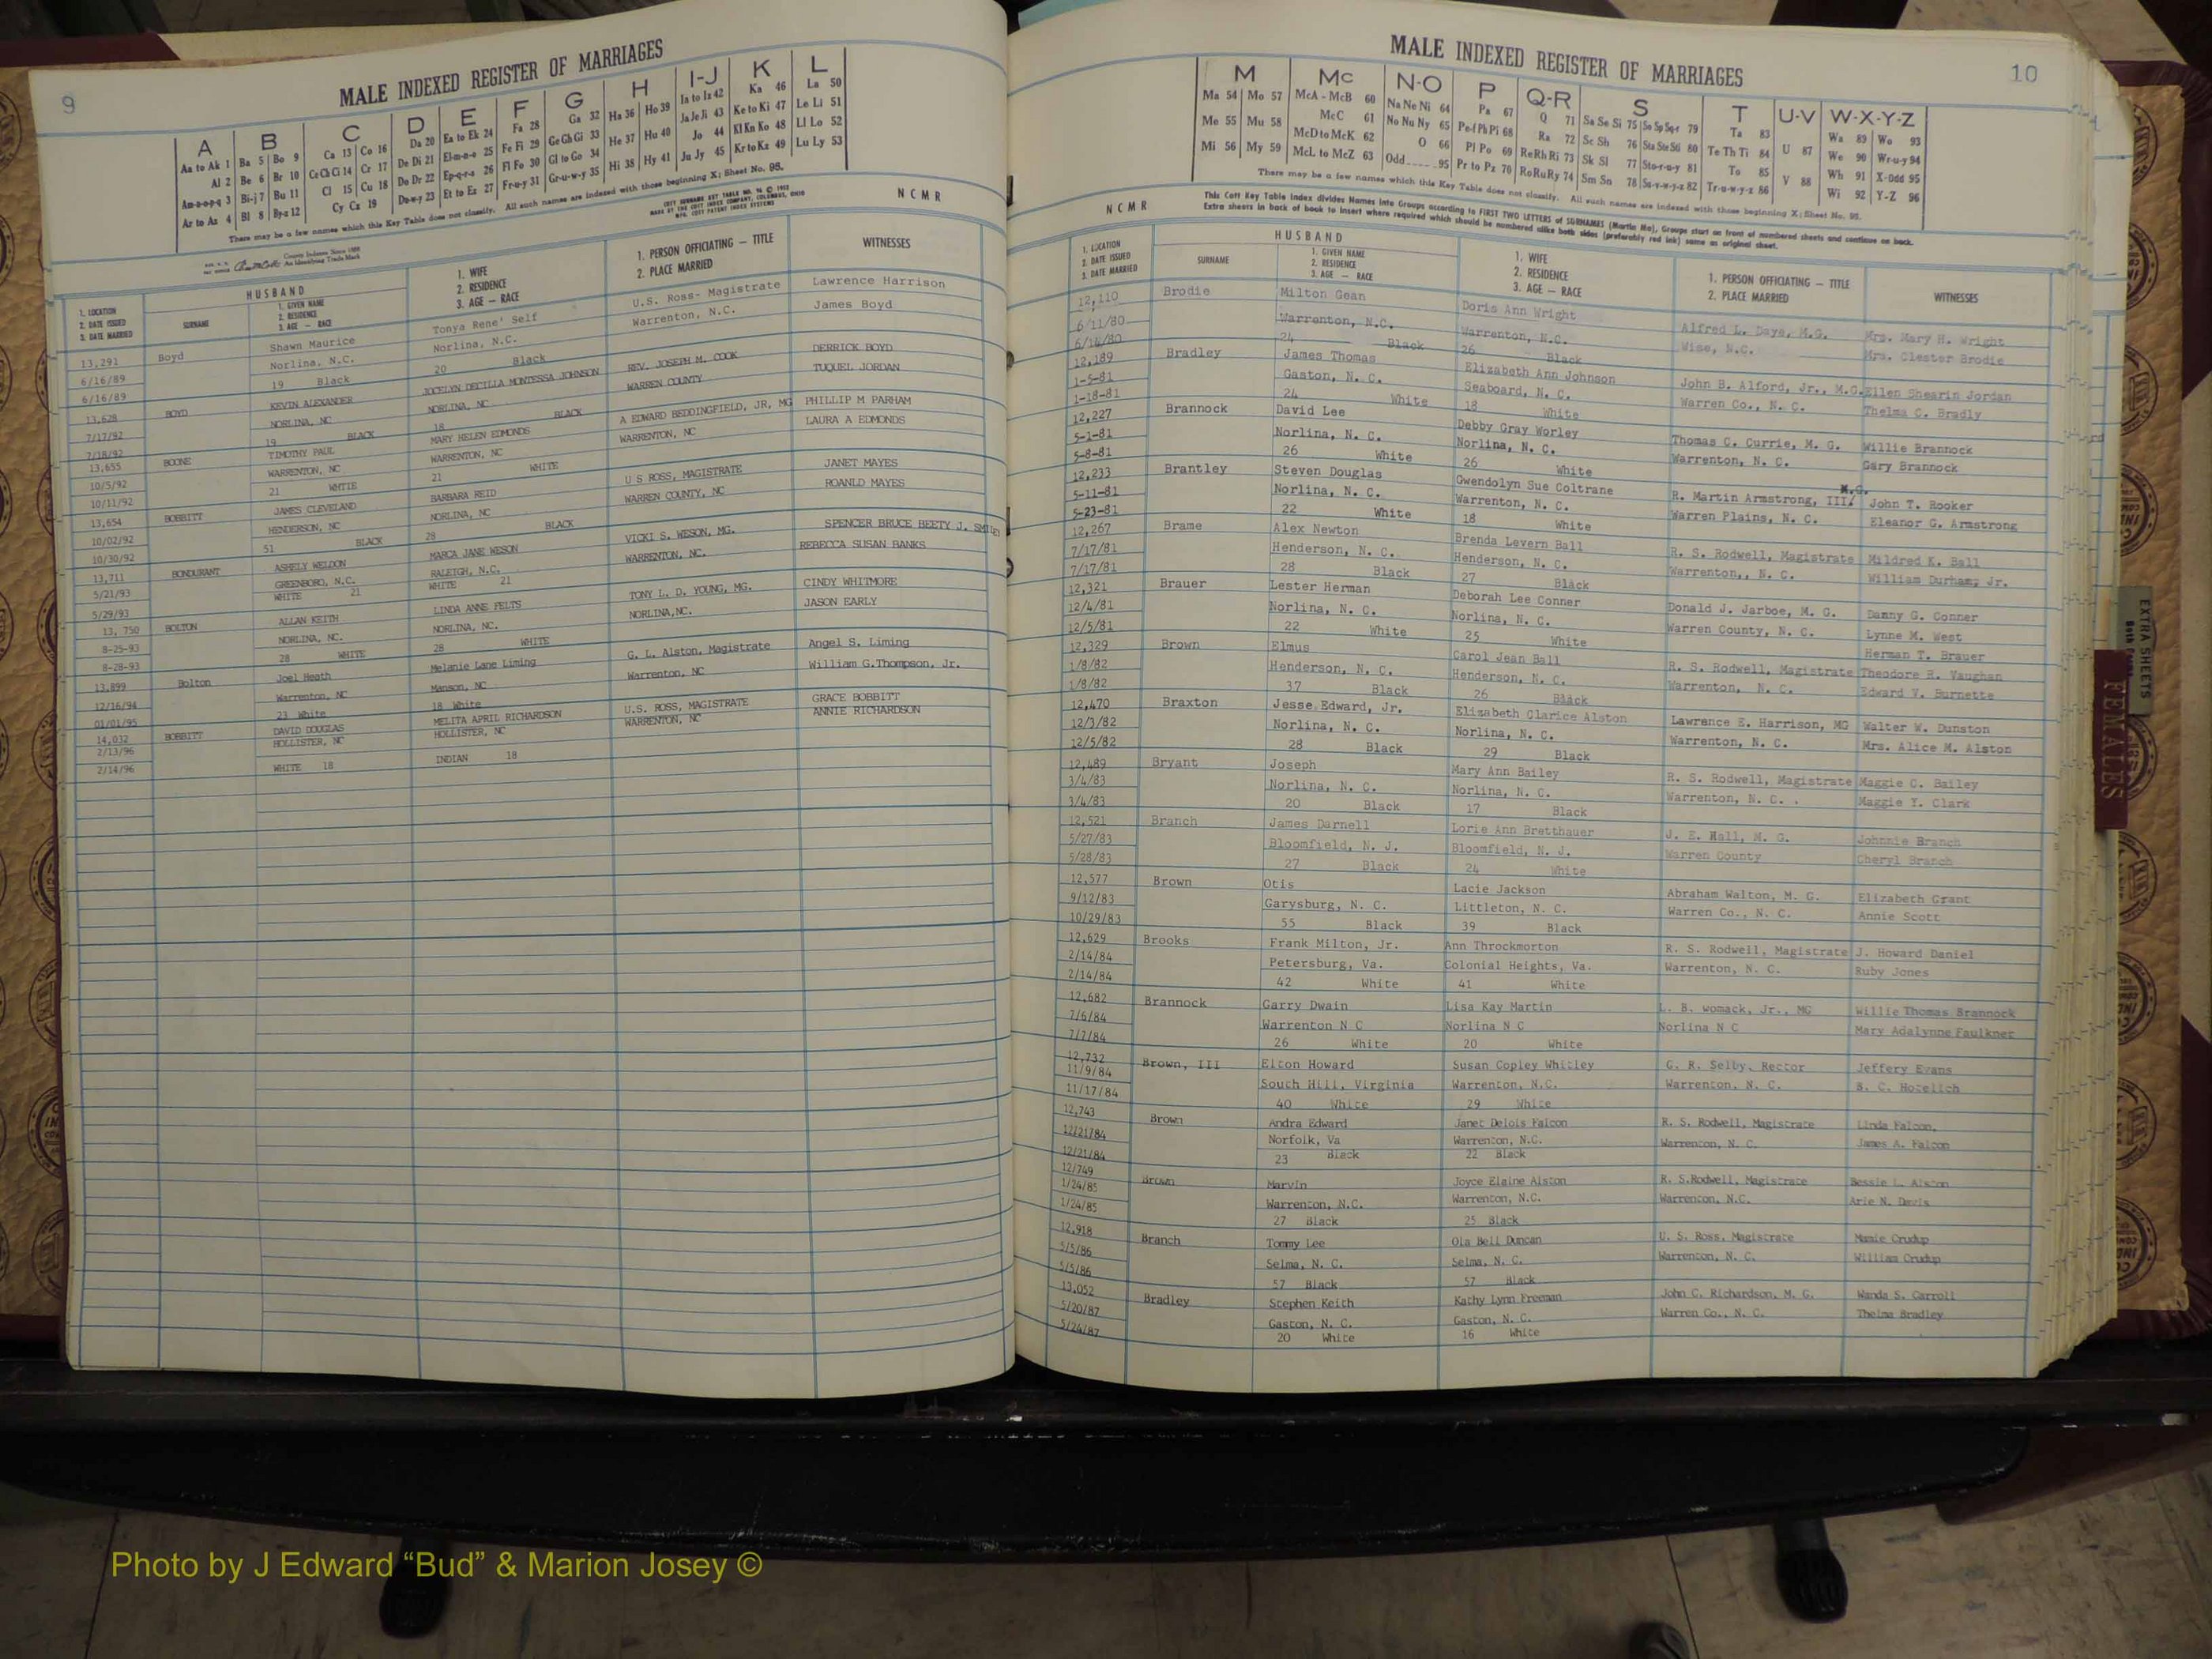 9
MALE INDEXED REGISTER OF MARRIAGES
A B C D E F G H I-J K L
Aa to Ak 1 Ba 5 Bo 9 Ca 13 Co 16 Da 20 Ea to Ek 24 Fa 28 Ga 32 Ha 36 Ho 39 Ia to Iz 42 Ka 46 La 50
Al 2 Be 6 Br 10 Ce Ch Ci 14 Cr 17 De Di 21 El-m-n-o 25 Fe Fi 29 Ge Gh Gi 33 He 37 Hu 40 Ja Je Ji 43 Ke to Ki 47 Le Li 51
Am-n-o-p-q 3 Bi-j 7 Bu 11 Cl 15 Cu 18 Do Dr 22 Ep-q-r-s 26 Fl Fo 30 Gl to Go 34 Hi 38 Hy 41 Jo 44 Kl Kn Ko 48 Ll Lo 52
Ar to Az 4 Bl 8 By-z 12 Cy Cz 19 Du-w-y 23 Et to Ez 27 Fr-u-y 31 Gr-u-w-y 35 Ju Jy 45 Kr to Kz 49 Lu Ly 53
There may be a few names which this Key Table does not classify. All such names are indexed with those beginning X; Sheet No. 95.
NCMR
1. LOCATION
2. DATE ISSUED
3. DATE MARRIED
HUSBAND
SURNAME
1. GIVEN NAME
2. RESIDENCE
3. AGE — RACE
1. WIFE
2. RESIDENCE
3. AGE — RACE
1. PERSON OFFICIATING — TITLE
2. PLACE MARRIED
WITNESSES
13,291 Boyd Shawn Maurice Tonya Rene' Self U.S. Ross- Magistrate Lawrence Harrison
6/16/89 Norlina, N.C. Norlina, N.C. Warrenton, N.C. James Boyd
6/16/89 19 Black 20 Black
13,628 BOYD KEVIN ALEXANDER JOCELYN DECILLA MONTESSA JOHNSON REV. JOSEPH M. COOK DERRICK BOYD
7/17/92 NORLINA, NC NORLINA, NC WARREN COUNTY TUQUEL JORDAN
7/18/92 19 BLACK 18 BLACK
13,655 BOONE TIMOTHY PAUL MARY HELEN EDMONDS A EDWARD BEDDINGFIELD, JR, MG PHILLIP M PARHAM
10/5/92 WARRENTON, NC WARRENTON, NC WARRENTON, NC LAURA A EDMONDS
10/11/92 21 WHTIE 21 WHITE
13,654 BOBBITT JAMES CLEVELAND BARBARA REID U S ROSS, MAGISTRATE JANET MAYES
10/02/92 HENDERSON, NC NORLINA, NC WARREN COUNTY, NC ROANLD MAYES
10/30/92 51 BLACK 28 BLACK
13,711 BONDURANT ASHELY WELDON MARCA JANE WESON VICKI S. WESON, MG. SPENCER BRUCE BEETY J.
5/21/93 GREENSBORO, N.C. RALEIGH, N.C. WARRENTON, NC. REBECCA SUSAN BANKS
5/29/93 WHITE 21 WHITE 21
13, 750 BOLTON ALLAN KEITH LINDA ANNE FELTS TONY L. D. YOUNG, MG. CINDY WHITMORE
8-25-93 NORLINA, NC. NORLINA, NC. NORLINA,NC. JASON EARLY
8-28-93 28 WHITE 28 WHITE
13,899 Bolton Joel Heath Melanie Lane Liming G. L. Alston, Magistrate Angel S. Liming
12/16/94 Warrenton, NC Manson, NC Warrenton, NC William G.Thompson, Jr.
01/01/95 23 White 18 White
14,032 BOBBITT DAVID DOUGLAS MELITA APRIL RICHARDSON U.S. ROSS, MAGISTRATE GRACE BOBBITT
2/13/96 HOLLISTER, NC HOLLISTER, NC WARRENTON, NC ANNIE RICHARDSON
2/14/96 WHITE 18 INDIAN 18
10
MALE INDEXED REGISTER OF MARRIAGES
M Mc N-O P Q-R S T U-V W-X-Y-Z
Ma 54 Mo 57 McA - McB 60 Na Ne Ni 64 Pa 67 Q 71 Sa Se Si 75 So Sp Sq-r 79 Ta 83 U 87 Wa 89 Wo 93
Me 55 Mu 58 McC 61 No Nu Ny 65 Pe-f Ph Pi 68 Ra 72 Sc Sh 76 Sta Ste Sti 80 Te Th Ti 84 V 88 We 90 Wr-u-y 94
Mi 56 My 59 McD to McK 62 O 66 Pl Po 69 Re Rh Ri 73 Sk Sl 77 Sto-r-u-y 81 To 85 Wh 91 X-Odd 95
McL to McZ 63 Odd 95 Pr to Pz 70 Ro Ru Ry 74 Sm Sn 78 Su-v-w-y-z 82 Tr-u-w-y-z 86 Wi 92 Y-Z 96
There may be a few names which this Key Table does not classify. All such names are indexed with those beginning X; Sheet No. 95.
This Cott Key Table Index divides Names into Groups according to FIRST TWO LETTERS of SURNAMES (Martin Ma), Groups start on front of numbered sheets and continue on back.
Extra sheets in back of book to insert where required which should be numbered alike both sides (preferably red ink) same as original sheet.
NCMR
1. LOCATION
2. DATE ISSUED
3. DATE MARRIED
HUSBAND
SURNAME
1. GIVEN NAME
2. RESIDENCE
3. AGE — RACE
1. WIFE
2. RESIDENCE
3. AGE — RACE
1. PERSON OFFICIATING — TITLE
2. PLACE MARRIED
WITNESSES
12,110 Brodie Milton Gean Doris Ann Wright Alfred L. Daye, M.G. Mrs. Mary H. Wright
6/11/80 Warrenton, N.C. Warrenton, N.C. Wise, N.C. Mrs. Clester Brodie
6/14/80 24 Black 26 Black
12,189 Bradley James Thomas Elizabeth Ann Johnson John B. Alford, Jr., M.G. Ellen Shearin Jordan
1-5-81 Gaston, N. C. Seaboard, N. C. Warren Co., N. C. Thelma C. Bradly
1-18-81 24 White 18 White
12,227 Brannock David Lee Debby Gray Worley Thomas C. Currie, M. G. Willie Brannock
5-1-81 Norlina, N. C. Norlina, N. C. Warrenton, N. C. Gary Brannock
5-8-81 26 White 26 White
12,233 Brantley Steven Douglas Gwendolyn Sue Coltrane R. Martin Armstrong, III/ M.G. John T. Rooker
5-11-81 Norlina, N. C. Warrenton, N. C. Warren Plains, N. C. Eleanor G. Armstrong
5-23-81 22 White 18 White
12,267 Brame Alex Newton Brenda Levern Ball R. S. Rodwell, Magistrate Mildred K. Ball
7/17/81 Henderson, N. C. Henderson, N. C. Warrenton,, N. C. William Durham, Jr.
7/17/81 28 Black 27 Black
12,321 Brauer Lester Herman Deborah Lee Conner Donald J. Jarboe, M. G. Danny G. Conner
12/4/81 Norlina, N. C. Norlina, N. C. Warren County, N. C. Lynne M. West
12/5/81 22 White 25 White Herman T. Brauer
12,329 Brown Elmus Carol Jean Ball R. S. Rodwell, Magistrate Theodore R. Vaughan
1/8/82 Henderson, N. C. Henderson, N. C. Warrenton, N. C. Edward V. Burnette
1/8/82 37 Black 26 Black
12,470 Braxton Jesse Edward, Jr. Elizabeth Clarice Alston Lawrence E. Harrison, MG Walter W. Dunston
12/3/82 Norlina, N. C. Norlina, N. C. Warrenton, N. C. Mrs. Alice M. Alston
12/5/82 28 Black 29 Black
12,489 Bryant Joseph Mary Ann Bailey R. S. Rodwell, Magistrate Maggie C. Bailey
3/4/83 Norlina, N. C. Norlina, N. C. Warrenton, N. C. . Maggie Y. Clark
3/4/83 20 Black 17 Black
12,521 Branch James Darnell Lorie Ann Bretthauer J. E. Hall, M. G. Johnnie Branch
5/27/83 Bloomfield, N. J. Bloomfield, N. J. Warren County Cheryl Branch
5/28/83 27 Black 24 White
12,577 Brown Otis Lacie Jackson Abraham Walton, M. G. Elizabeth Grant
9/12/83 Garysburg, N. C. Littleton, N. C. Warren Co., N. C. Annie Scott
10/29/83 55 Black 39 Black
12,629 Brooks Frank Milton, Jr. Ann Throckmorton R. S. Rodwell, Magistrate J. Howard Daniel
2/14/84 Petersburg, Va. Colonial Heights, Va. Warrenton, N. C. Ruby Jones
2/14/84 42 White 41 White
12,682 Brannock Garry Dwain Lisa Kay Martin L. B. womack, Jr., MG Willie Thomas Brannock
7/6/84 Warrenton N C Norlina N C Norlina N C Mary Adalynne Faulkner
7/7/84 26 White 20 White
12,732 Brown, III Elton Howard Susan Copley Whitley G. R. Selby, Rector Jeffery Evans
11/9/84 South Hill, Virginia Warrenton, N.C. Warrenton, N. C. B. C. Hotelich
11/17/84 40 White 29 White
12,743 Brown Andra Edward Janet Delois Falcon R. S. Rodwell, Magistrate Linda Falcon,
12/21/84 Norfolk, Va Warrenton, N.C. Warrenton, N. C. James A. Falcon
12/21/84 23 Black 22 Black
12/749 Brown Marvin Joyce Elaine Alston R. S.Rodwell, Magistrate Bessie L. Alston
1/24/85 Warrenton, N.C. Warrenton, N.C. Warrenton, N.C. Arie N. Davis
1/24/85 27 Black 25 Black
12,918 Branch Tommy Lee Ola Bell Duncan U. S. Ross, Magistrate Mamie Crudup
5/5/86 Selma, N. C. Selma, N. C. Warrenton, N. C. William Crudup
5/5/86 57 Black 57 Black
13,052 Bradley Stephen Keith Kathy Lynn Freeman John C. Richardson, M. G. Wanda S. Carroll
5/20/87 Gaston, N. C. Gaston, N. C. Warren Co., N. C. Thelma Bradley
5/24/87 20 White 16 White
EXTRA SHEETS
FEMALES
Photo by J Edward “Bud” & Marion Josey ©